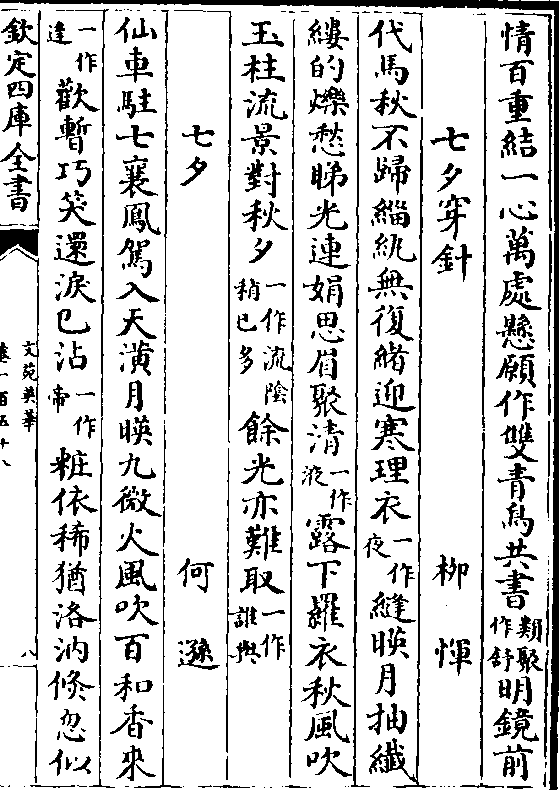 情百重結一心萬處懸願作雙青鳥共書類聚作舒明鏡前
七夕穿針 柳惲
代馬秋不歸緇紈無復緒迎寒理衣一作夜縫暎月抽纖
縷的爍愁睇光連娟思眉聚清一作液露下羅衣秋風吹
玉柱流景對秋夕一作流陰稍已多餘光亦難取一作誰與
七夕 何遜
仙車駐七襄鳳駕入天潢月暎九微火風吹百和香來
一作逢歡暫巧笑還淚已沾一作啼粧依稀猶洛汭倏忽似
欽定四庫全書
文苑英華
卷一百五十八
八